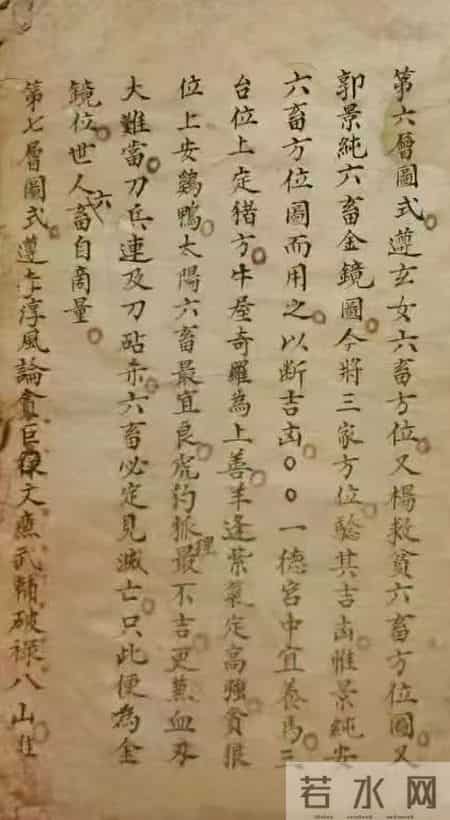 第六層圖式遵玄女六畜方位又楊救貧六畜方位圖又
郭景純六畜金鏡圖今將三家方位驗其吉凶惟景純安
六畜方位圖而用之以斷吉凶○○一德宮中宜養馬三
台位上定猪方牛屋奇羅為上善羊逢紫氣定高強貪狼
位上安鷄鴨太陽六畜最宜良虎豹狐狸最不吉更蕉血刃
大難當刀兵連及刀砧杀六畜必定見滅亡只此便為金
鏡位世人六畜自商量
第七層圖式遵李淳風論貪巨祿文亷武輔破祿八山
若水网